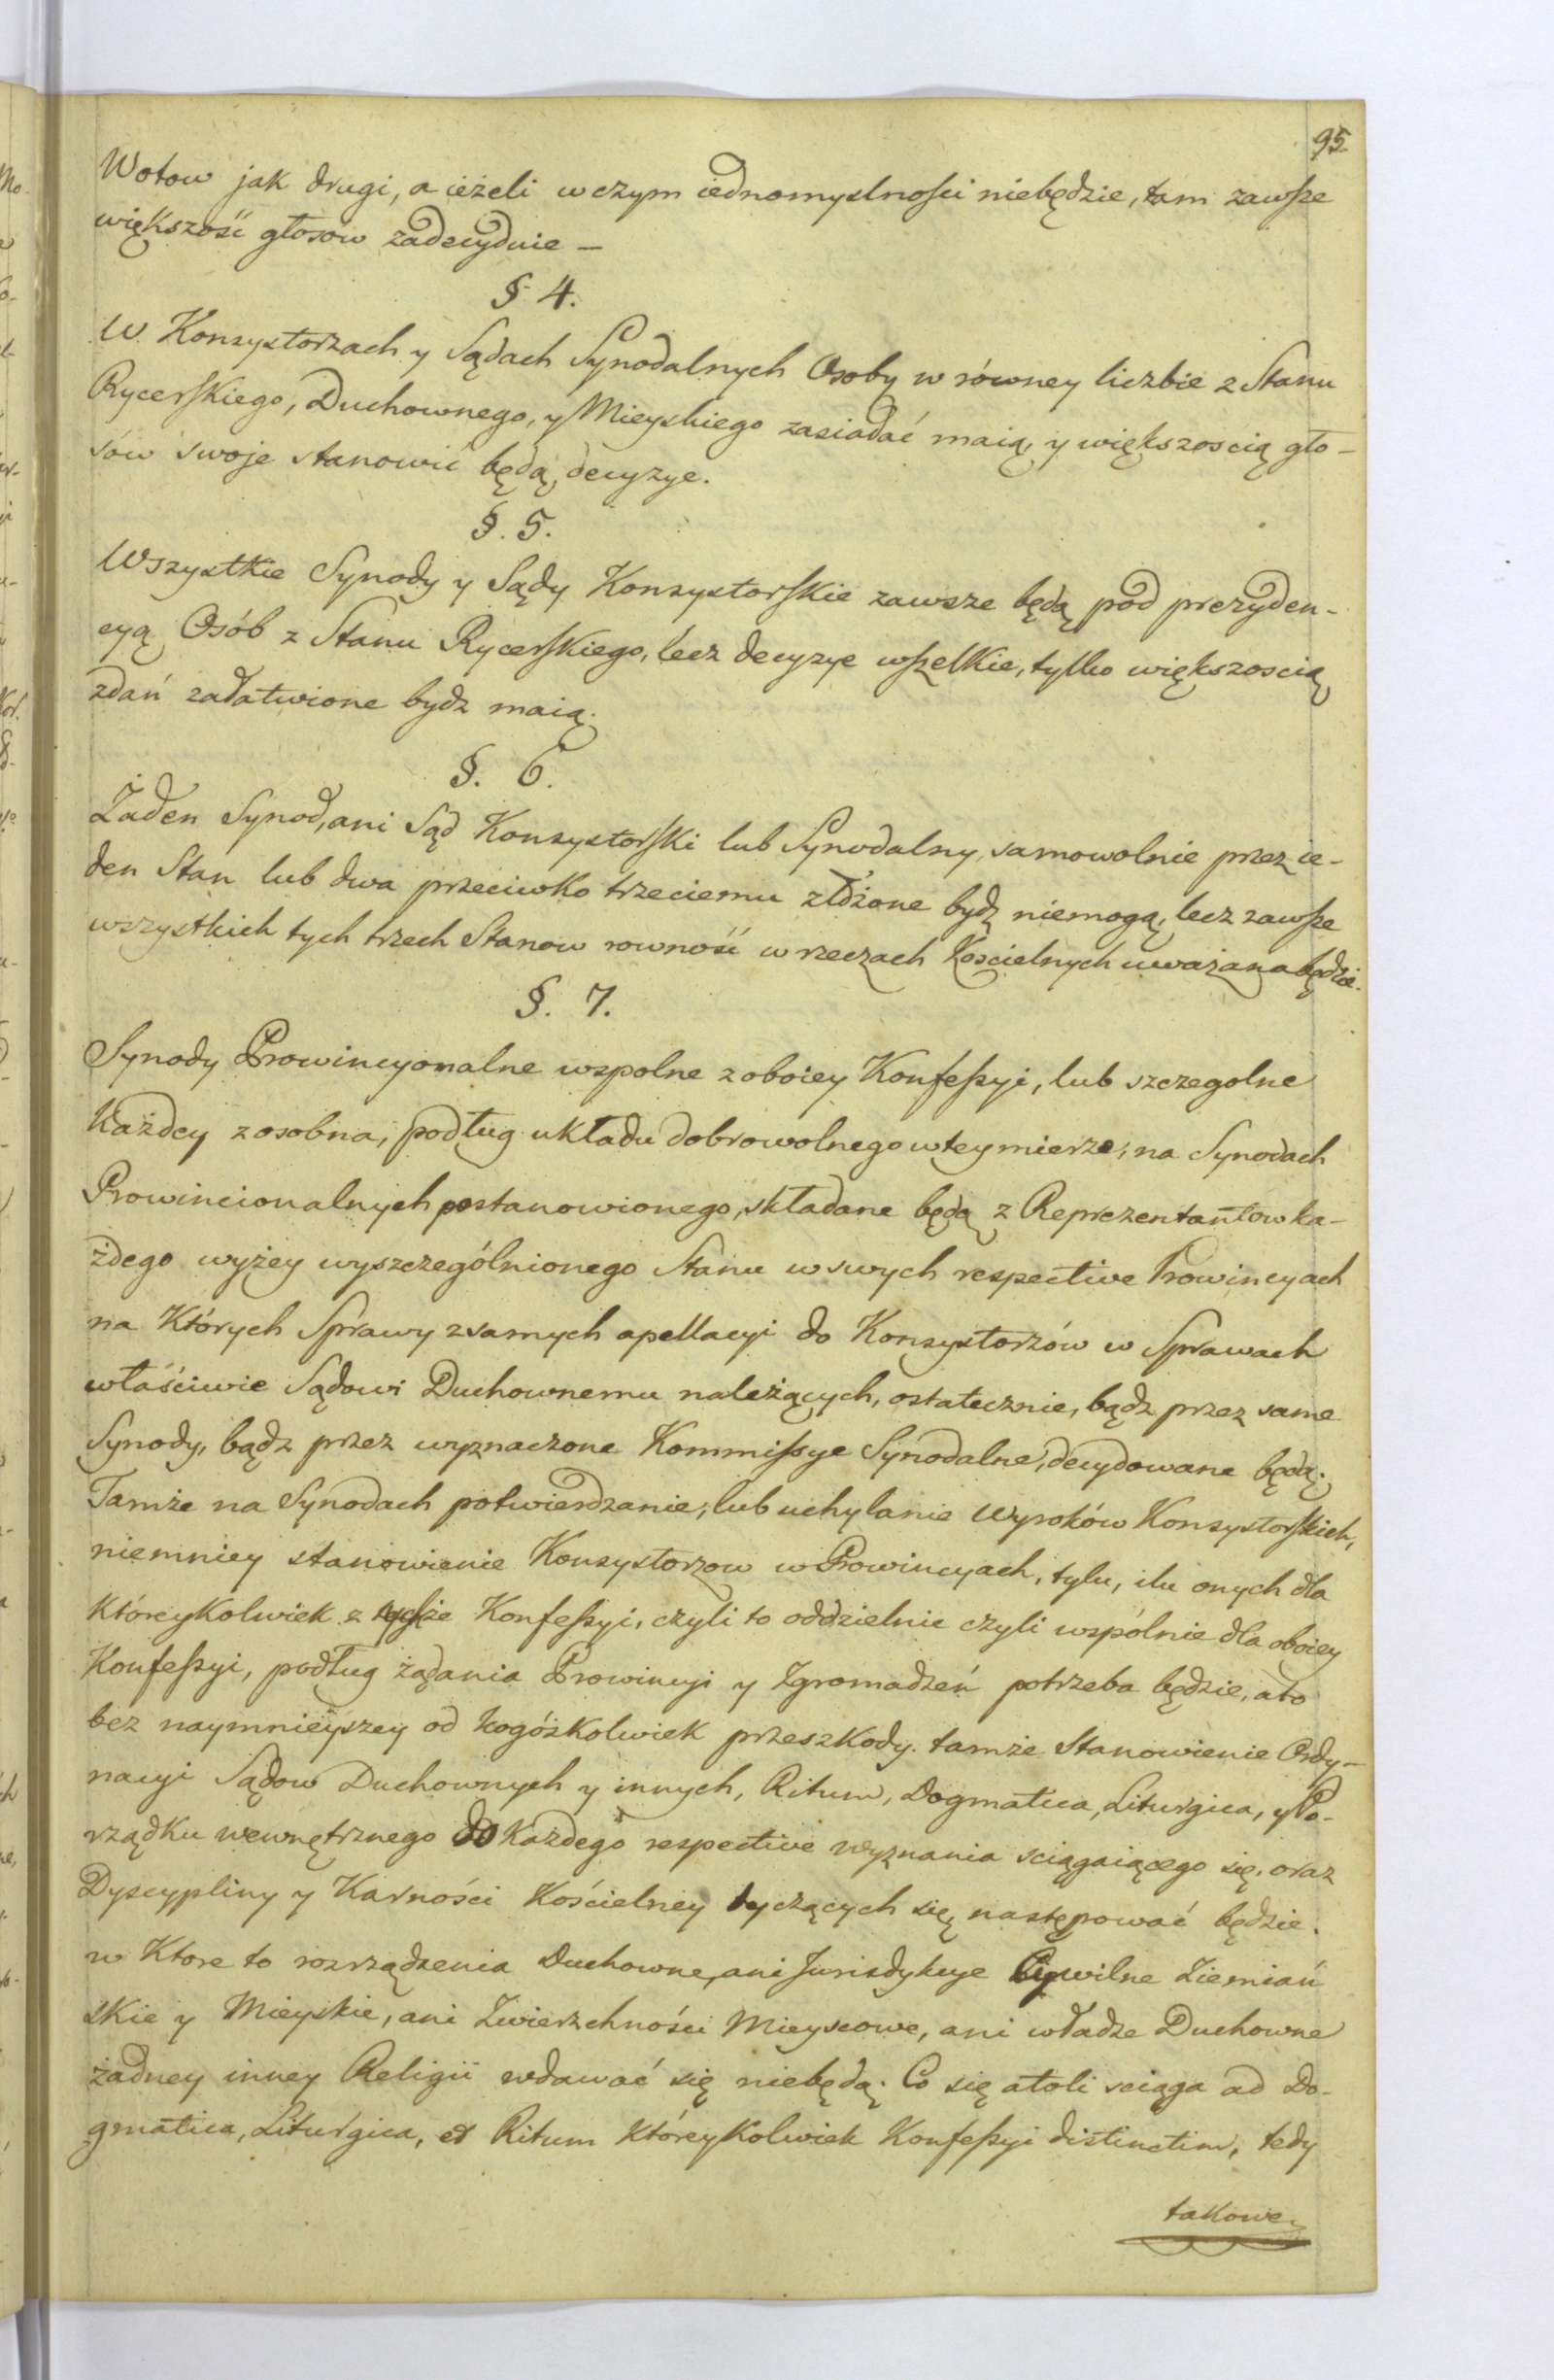 95
Wotow jak drugi, a ieżeli w czym iednomyslnosci niebędzie, tam zawsze
większość głosow zadecyduie –
§ 4.
W Konzystorzach y Sądach Synodalnych Osoby w równey liczbie z Stanu
Rycerskiego, Duchownego, y Mieyskiego zasiadać maią, y większoscią gło–
sów swoje stanowić będą, decyzye.
§. 5.
Wszystkie Synody y Sądy Konzystorskie zawsze będą pod prezyden–
cyą Osób z Stanu Rycerskiego, lecz decyzye wszelkie, tylko większoscią
zdań załatwione bydz maią.
§. 6.
Żaden Synod, ani Sąd Konzystorski lub Synodalny, samowolnie przez ie–
den Stan lub dwa przeciwko trzeciemu złożone bydz niemogą, lecz zawsze
wszystkich tych trzech Stanow rowność w rzeczach Koscielnych uważana będzie.
§. 7.
Synody Prowincyonalne wspolne z oboiey Konfessyi, lub szczegolne
Każdey z osobna, podług układu dobrowolnego w tey mierze, na Synodach
Prowincionalnych postanowionego, składane będą z Reprezentantow ka–
żdego wyżey wyszczególnionego Stanu w swych respective Prowincyach
na Których Sprawy z samych apellacyi do Konzystorzów w Sprawach
właściwie Sądowi Duchownemu należących, ostatecznie, bądz przez same
Synody, bądz przez wyznaczone Kommissye Synodalne, decydowane będą;
Tamże na Synodach potwierdzanie, lub uchylanie Wyroków Konzystorskich,
niemniey stanowienie Konzystorzow w Prowincyach, tylu, ilu onych dla
KtóreyKolwiek z tychże Konfessyi, czyli to oddzielnie czyli wspólnie dla oboiey
Konfessyi, podług żądania Prowincyi y Zgromadzeń potrzeba będzie, a to
bez naymnieyszey od kogóżKolwiek przeszKody. tamże Stanowienie Ordy–
nacyi Sądow Duchownych y innych, Ritum, Dogmatica, Liturgica, y Po–
rządku wewnętrznego do Każdego respective wyznania sciągaiącego się, oraz
Dyscypliny y Karności Kościelney tyczących się, następować będzie.
w Ktore to rozrządzenia Duchowne, ani Jurisdykcye Cywilne Ziemiań
skie y Mieyskie, ani Zwierzchności Mieyscowe, ani władze Duchowne
żadney inney Religii wdawać się niebędą. Co się atoli sciąga ad Do–
gmatica, Liturgica, et Ritum KtóreyKolwiek Konfessyi distinctim, tedy
takowe